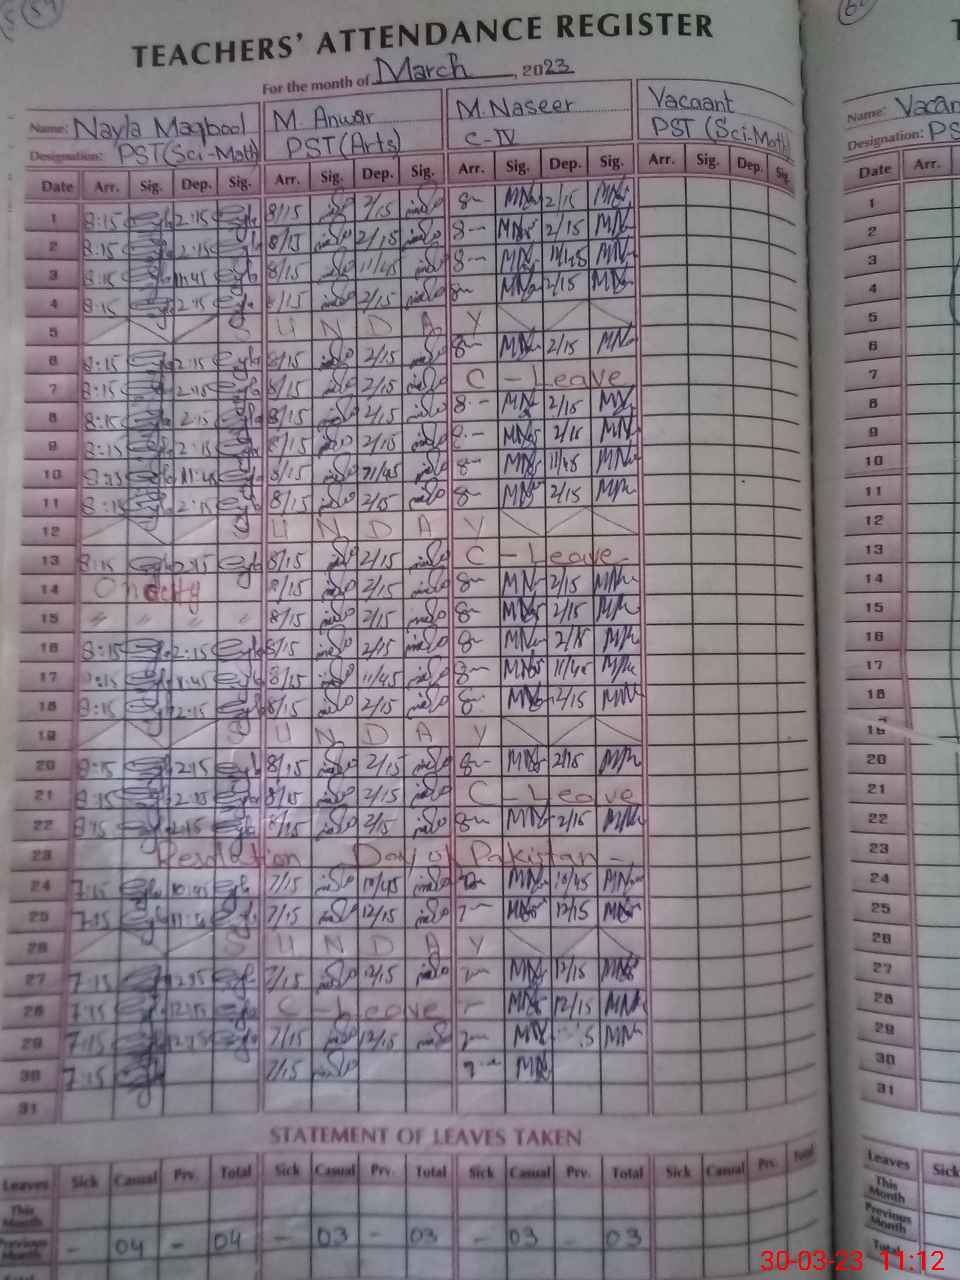 TEACHERS' ATTENDANCE REGISTER
For the month of March, 2023
Name: Nayla Maqbool M. Anwar M. Naseer Vacaant
Designation: PST(Sci-Math) PST (Arts) C-IV PST (Sci-Math)
Date Arr. Sig. Dep. Sig. Arr. Sig. Dep. Sig. Arr. Sig. Dep. Sig. Arr. Sig. Dep. Sig.
1 8:15 2:15 8/15 2/15 8- MN 2/15 MN
2 8:15 2:15 8/15 2/15 8- MN 2/15 MN
3 8:15 11:45 8/15 11/45 8- MN 11/45 MN
4 8:15 2:15 8/15 2/15 8- MN 2/15 MN
5 S U N D A Y
6 8:15 2:15 8/15 2/15 8- MN 2/15 MN
7 8:15 2:15 8/15 2/15 C - Leave
8 8:15 2:15 8/15 2/15 8- MN 2/15 MN
9 8:15 2:15 8/15 2/15 8- MN 2/15 MN
10 8:15 11:45 8/15 11/45 8- MN 11/45 MN
11 8:15 2:15 8/15 2/15 8- MN 2/15 MN
12 S U N D A Y
13 8:15 2:15 8/15 2/15 C - Leave
14 On duty 8/15 2/15 8- MN 2/15 MN
15 " " " " 8/15 2/15 8- MN 2/15 MN
16 8:15 2:15 8/15 2/15 8- MN 2/15 MN
17 :15 11:45 8/15 11/45 8- MN 11/45 MN
18 8:15 2:15 8/15 2/15 8- MN 2/15 MN
19 S U N D A Y
20 8:15 2:15 8/15 2/15 8- MN 2/15 MN
21 8:15 2:15 8/15 2/15 C - Leave
22 8:15 2:15 8/15 2/15 8- MN 2/15 MN
23 Resolution Day of Pakistan -
24 7:15 10:45 7/15 10/45 7- MN 10/45 MN
25 7:15 7/15 12/15 7- MN 12/15 MN
26 S U N D A Y
27 7:15 12:15 7/15 12/15 7- MN 12/15 MN
28 7:15 12:15 C - Leave 7- MN 12/15 MN
29 7:15 12:15 7/15 12/15 7- MN MN
30 7:15 7/15 7- MN
31
STATEMENT OF LEAVES TAKEN
Leaves Sick Casual Prv. Total Sick Casual Prv. Total Sick Casual Prv. Total Sick Casual Prv. Total
This Month
Previous Month - 04 - 04 - 03 - 03 - 03 - 03
Total
Name: Vacan
Designation: PS
Date Arr.
1
2
3
4
5
6
7
8
9
10
11
12
13
14
15
16
17
18
19
20
21
22
23
24
25
26
27
28
29
30
31
Leaves Sick
This Month
Previous Month
Total
30-03-23 11:12